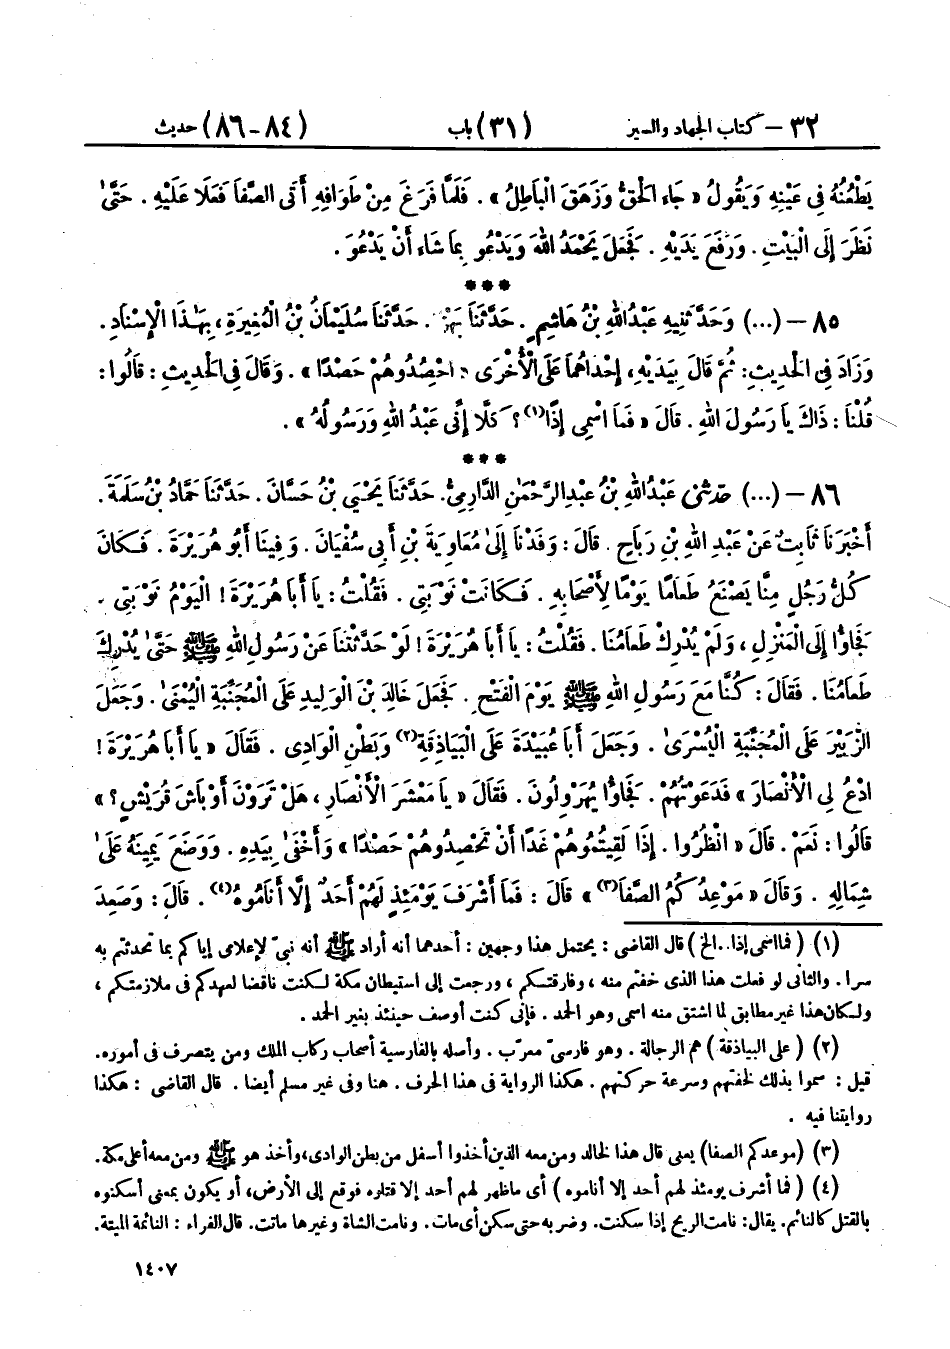 ٣٢ — كتاب الجهاد والسير (٣١) باب (٨٤-٨٦) حديث
يَطْعُنُهُ فِي عَيْنِهِ وَيَقُولُ « جَاءَ الْحَقُّ وَزَهَقَ الْبَاطِلُ » . فَلَمَّا فَرَغَ مِنْ طَوَافِهِ أَتَى الصَّفَا فَعَلَا عَلَيْهِ . حَتَّىٰ
نَظَرَ إِلَى الْبَيْتِ . وَرَفَعَ يَدَيْهِ . فَجَعَلَ يَحْمَدُ اللهَ وَيَدْعُو بِمَا شَاءَ أَنْ يَدْعُوَ .
***
٨٥ — (...) وَحَدَّثَنِيهِ عَبْدُ اللهِ بْنُ هَاشِمٍ . حَدَّثَنَا بَهْزٌ . حَدَّثَنَا سُلَيْمَانُ بْنُ الْمُغِيرَةِ، بِهَٰذَا الْإِسْنَادِ .
وَزَادَ فِي الْحَدِيثِ: ثُمَّ قَالَ بِيَدَيْهِ، إِحْدَاهُمَا عَلَى الْأُخْرَى « احْصُدُوهُمْ حَصْدًا » . وَقَالَ فِي الْحَدِيثِ : قَالُوا :
قُلْنَا : ذَاكَ يَا رَسُولَ اللهِ . قَالَ « فَمَا اسْمِي إِذًا(١) ؟ كَلَّا إِنِّي عَبْدُ اللهِ وَرَسُولُهُ » .
***
٨٦ — (...) حَدَّثَنِي عَبْدُ اللهِ بْنُ عَبْدِ الرَّحْمَٰنِ الدَّارِمِيُّ. حَدَّثَنَا يَحْيَى بْنُ حَسَّانَ . حَدَّثَنَا حَمَّادُ بْنُ سَلَمَةَ .
أَخْبَرَنَا ثَابِتٌ عَنْ عَبْدِ اللهِ بْنِ رَبَاحٍ . قَالَ : وَفَدْنَا إِلَىٰ مُعَاوِيَةَ بْنِ أَبِي سُفْيَانَ . وَفِينَا أَبُو هُرَيْرَةَ . فَكَانَ
كُلُّ رَجُلٍ مِنَّا يَصْنَعُ طَعَامًا يَوْمًا لِأَصْحَابِهِ . فَكَانَتْ نَوْبَتِي . فَقُلْتُ : يَا أَبَا هُرَيْرَةَ ! الْيَوْمُ نَوْبَتِي .
فَجَاؤُا إِلَى الْمَنْزِلِ ، وَلَمْ يُدْرِكْ طَعَامُنَا . فَقُلْتُ : يَا أَبَا هُرَيْرَةَ ! لَوْ حَدَّثْتَنَا عَنْ رَسُولِ اللهِ ﷺ حَتَّىٰ يُدْرِكَ
طَعَامُنَا . فَقَالَ : كُنَّا مَعَ رَسُولِ اللهِ ﷺ يَوْمَ الْفَتْحِ . فَجَعَلَ خَالِدَ بْنَ الْوَلِيدِ عَلَى الْمُجَنِّبَةِ الْيُمْنَىٰ . وَجَعَلَ
الزُّبَيْرَ عَلَى الْمُجَنِّبَةِ الْيُسْرَىٰ . وَجَعَلَ أَبَا عُبَيْدَةَ عَلَى الْبَيَاذِقَةِ(٢) وَبَطْنِ الْوَادِي . فَقَالَ « يَا أَبَا هُرَيْرَةَ !
ادْعُ لِي الْأَنْصَارَ » فَدَعَوْتُهُمْ . فَجَاؤُا يُهَرْوِلُونَ . فَقَالَ « يَا مَعْشَرَ الْأَنْصَارِ ، هَلْ تَرَوْنَ أَوْبَاشَ قُرَيْشٍ ؟ »
قَالُوا : نَعَمْ . قَالَ « انْظُرُوا . إِذَا لَقِيتُمُوهُمْ غَدًا أَنْ تَحْصِدُوهُمْ حَصْدًا » وَأَخْفَىٰ بِيَدِهِ . وَوَضَعَ يَمِينَهُ عَلَىٰ
شِمَالِهِ . وَقَالَ « مَوْعِدُكُمُ الصَّفَا(٣) » قَالَ : فَمَا أَشْرَفَ يَوْمَئِذٍ لَهُمْ أَحَدٌ إِلَّا أَنَامُوهُ(٤) . قَالَ : وَصَعِدَ
(١) ( فما اسمي إذا..الخ ) قال القاضي : يحتمل هذا وجهين : أحدهما أنه أراد ﷺ أنه نبيّ لإعلامي إياكم بما تحدثتم به
سرا . والثاني لو فعلت هذا الذي خفتم منه ، وفارقتكم ، ورجعت إلى استيطان مكة لكنت ناقضا لعهدكم في ملازمتكم ،
ولكان هذا غير مطابق لما اشتق منه اسمي وهو الحمد . فإني كنت أوصف حينئذ بغير الحمد .
(٢) ( على البياذقة ) هم الرجالة . وهو فارسيّ معرّب . وأصله بالفارسية أصحاب ركاب الملك ومن يتصرف في أموره.
قيل : سموا بذلك لخفتهم وسرعة حركتهم . هكذا الرواية في هذا الحرف . هنا وفي غير مسلم أيضا . قال القاضي : هكذا
روايتنا فيه .
(٣) (موعدكم الصفا) يعني قال هذا لخالد ومن معه الذين أخذوا أسفل من بطن الوادي، وأخذ هو ﷺ ومن معه أعلى مكة.
(٤) ( فما أشرف يومئذ لهم أحد إلا أناموه ) أي ماظهر لهم أحد إلا قتلوه فوقع إلى الأرض، أو يكون بمعنى أسكنوه
بالقتل كالنائم. يقال: نامت الريح إذا سكنت. وضربه حتى سكن أي مات. ونامت الشاة وغيرها ماتت. قال الفراء : النائمة الميتة.
١٤٠٧